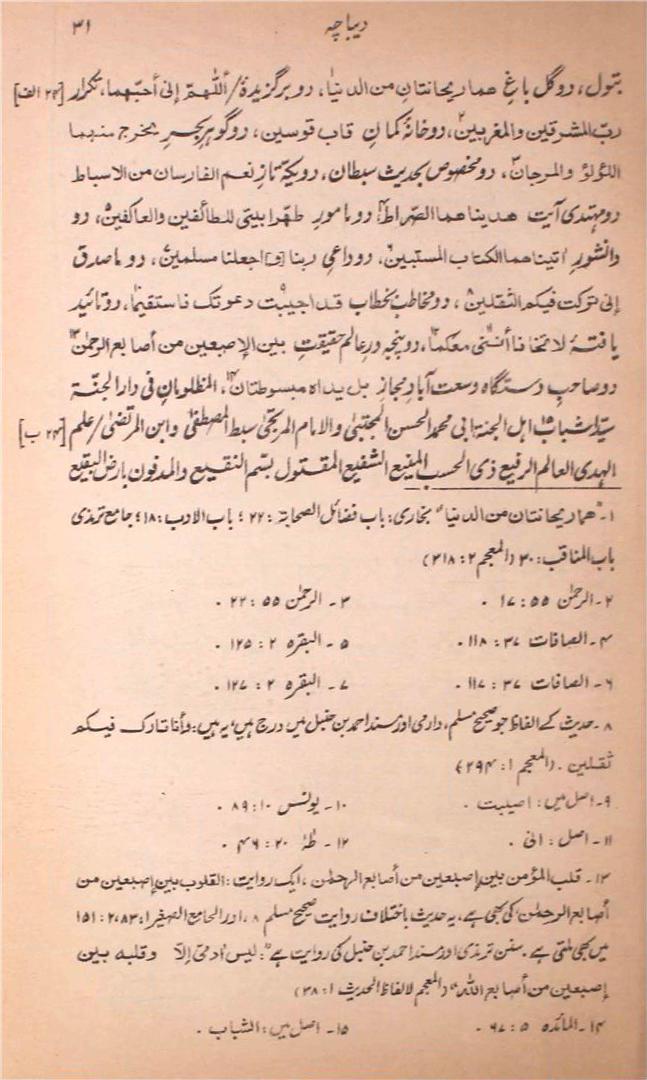 دیباچہ ۳۱
بتول، دو گل باغِ هما ریحانتان من الدنیا۱، دو برگزیدۂ / أللّٰهم إنی أحبّهما، تکرار [۲۴ الف]
ربّ المشرقین والمغربین۲، دو خانۂ کمانِ قاب قوسین، دو گوہر بحرِ یخرج منهما
اللؤلؤ والمرجان۳، دو مخصوص بحدیث سبطان، دو یکہ تازِ نعم الفارسان من الاسباط
دو مہتدی آیت هدیناهما الصّراط۴، دو مامورِ طهّرا بیتی للطائفین والعاکفین۵، دو
دانشورِ اٰتیناهما الکتاب المستبین۶، دو داعیِ ربنا [و] اجعلنا مسلمین۷، دو ماصدق
إنی ترکت فیکم الثقلین۸، دو مخاطب بخطاب قد اجیبت۹ دعوتک فاستقیما۱۰، دو تائید
یافتۂ لا تخافا أننی۱۱ معکما۱۲، دو پنجہ ور عالمِ حقیقت بین الإصبعین من أصابع الرحمٰن۱۳
دو صاحبِ دستگاہ وسعت آباد مجاز بل یداه مبسوطتان۱۴، المظلومان فی دار الجنّة
سیّدا شباب۱۵ اہل الجنة ابی محمد الحسن المجتبیٰ والامام المرتجیٰ سبط المصطفیٰ وابن المرتضیٰ / علم [۲۴ ب]
الہدی العالم الرفیع ذی الحسب المنیع الشفیع المقتول بسّم النقیع والمدفون بارض البقیع
۱۔ "هما ریحانتان من الدنیا" بخاری: باب فضائل الصحابة: ۲۲؛ باب الادب: ۱۸؛ جامع ترمذی
باب المناقب: ۳۰ (المعجم ۲: ۳۱۸)
۲۔ الرحمٰن ۵۵: ۱۷ ۔ ۳۔ الرحمٰن ۵۵: ۲۲ ۔
۴۔ الصافات ۳۷: ۱۱۸ ۔ ۵۔ البقرہ ۲: ۱۲۵ ۔
۶۔ الصافات ۳۷: ۱۱۷ ۔ ۷۔ البقرہ ۲: ۱۲۷ ۔
۸۔ حدیث کے الفاظ جو صحیح مسلم، دارمی اور مسند احمد بن حنبل میں درج ہیں، یہ ہیں: وأنا تارک فیکم
ثقلین۔ (المعجم ۱: ۲۹۴)
۹۔ اصل میں: اصیبت ۔ ۱۰۔ یونس ۱۰: ۸۹ ۔
۱۱۔ اصل: انی ۔ ۱۲۔ طٰہٰ ۲۰: ۴۶ ۔
۱۳۔ قلب المؤمن بین إصبعین من أصابع الرحمٰن، ایک روایت: القلوب بین إصبعین من
أصابع الرحمٰن کی بھی ہے، یہ حدیث باختلاف روایت صحیح مسلم ۸، اور الجامع الصغیر ۱: ۸۳، ۲: ۱۵۱
میں بھی ملتی ہے۔ سنن ترمذی اور مسند احمد بن حنبل کی روایت ہے: لیس اٰدمیّ إلّا وقلبه بین
إصبعین من أصابع اللّٰه" (المعجم لالفاظ الحدیث ۱: ۳۸)
۱۴۔ المائدہ ۵: ۶۷ ۔ ۱۵۔ اصل میں: الشباب ۔